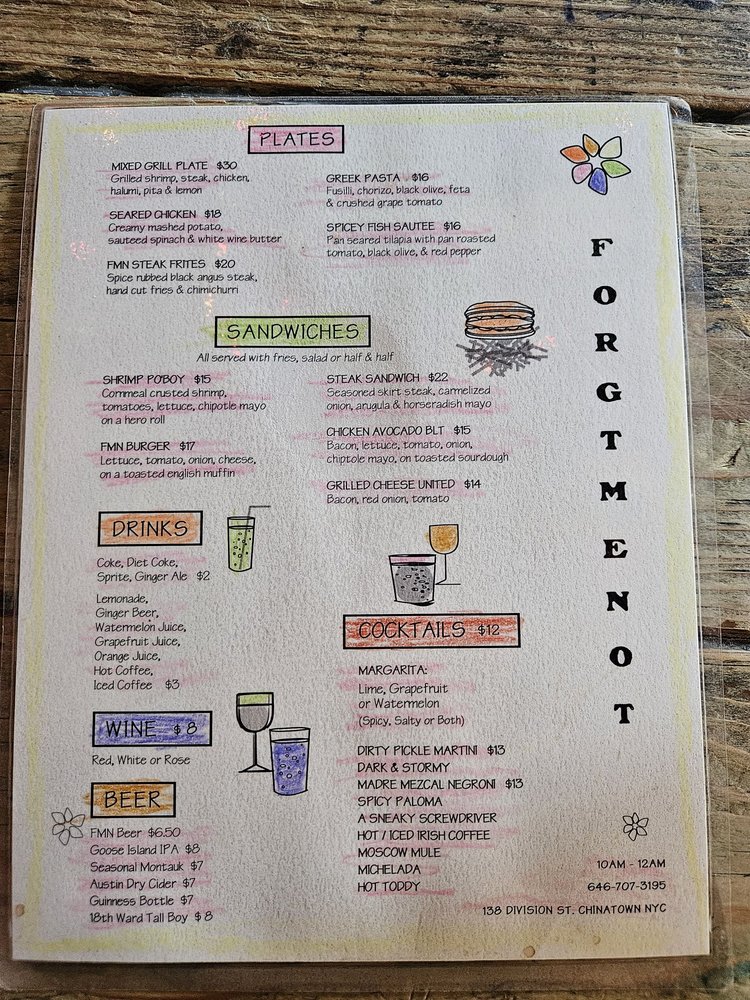 PLATES
MIXED GRILL PLATE $30
Grilled shrimp, steak, chicken,
halumi, pita & lemon
SEARED CHICKEN $18
Creamy mashed potato,
sauteed spinach & white wine butter
FMN STEAK FRITES $20
Spice rubbed black angus steak,
hand cut fries & chimichurri
GREEK PASTA $16
Fusilli, chorizo, black olive, feta
& crushed grape tomato
SPICEY FISH SAUTEE $16
Pan seared tilapia with pan roasted
tomato, black olive, & red pepper
SANDWICHES
All served with fries, salad or half & half
SHRIMP PO'BOY $15
Cornmeal crusted shrimp,
tomatoes, lettuce, chipotle mayo
on a hero roll
FMN BURGER $17
Lettuce, tomato, onion, cheese,
on a toasted english muffin
STEAK SANDWICH $22
Seasoned skirt steak, carmelized
onion, arugula & horseradish mayo
CHICKEN AVOCADO BLT $15
Bacon, lettuce, tomato, onion,
chiptole mayo, on toasted sourdough
GRILLED CHEESE UNITED $14
Bacon, red onion, tomato
DRINKS
Coke, Diet Coke,
Sprite, Ginger Ale $2
Lemonade,
Ginger Beer,
Watermelon Juice,
Grapefruit Juice,
Orange Juice,
Hot Coffee,
Iced Coffee $3
WINE $8
Red, White or Rose
BEER
FMN Beer $6.50
Goose Island IPA $8
Seasonal Montauk $7
Austin Dry Cider $7
Guinness Bottle $7
18th Ward Tall Boy $8
COCKTAILS $12
MARGARITA:
Lime, Grapefruit
or Watermelon
(Spicy, Salty or Both)
DIRTY PICKLE MARTINI $13
DARK & STORMY
MADRE MEZCAL NEGRONI $13
SPICY PALOMA
A SNEAKY SCREWDRIVER
HOT / ICED IRISH COFFEE
MOSCOW MULE
MICHELADA
HOT TODDY
FORGTMENOT
10AM - 12AM
646-707-3195
138 DIVISION ST. CHINATOWN NYC